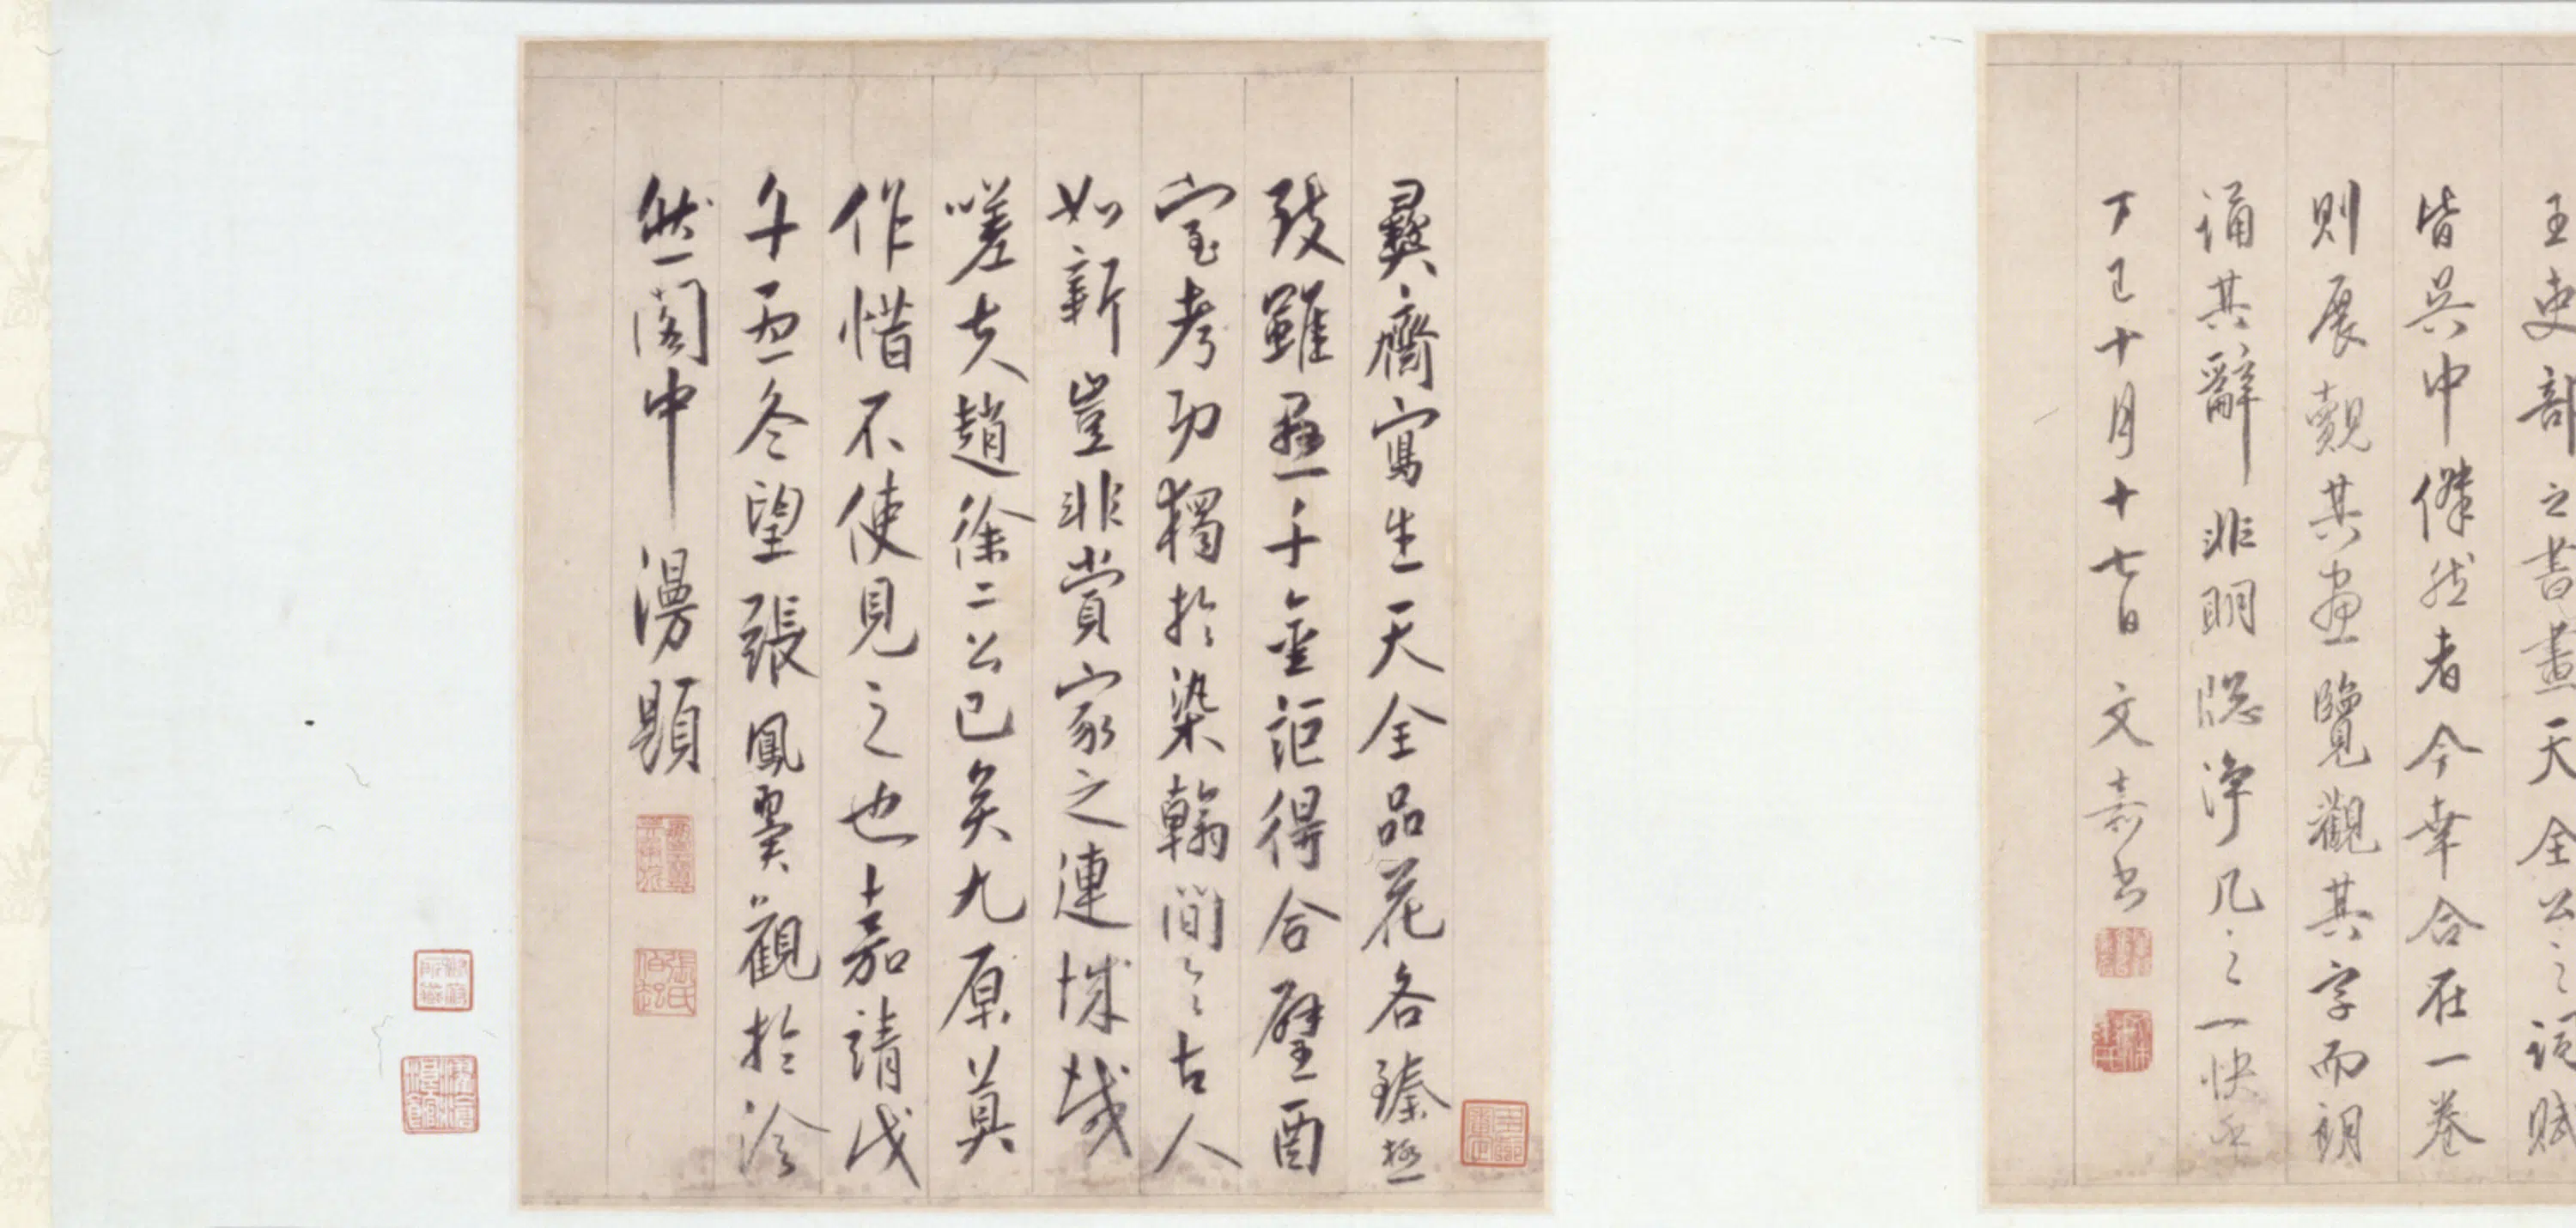 王吏部之書畫天全公之詞賦
皆吳中傑然者今幸合在一卷
則展覿其畫覽觀其字而朗
誦其辭非明牕淨几之一快
丁巳十月十七日文嘉書
彝齋寫生天全品花各臻極
致雖懸千金詎得合璧酉
室考功獨於染翰間令古人
如新豈非賞家之連城哉
嗟夫趙徐二公已矣九原莫
作惜不使見之也嘉靖戊
午孟冬望張鳳翼觀於泠
然閣中漫題
張氏伯起